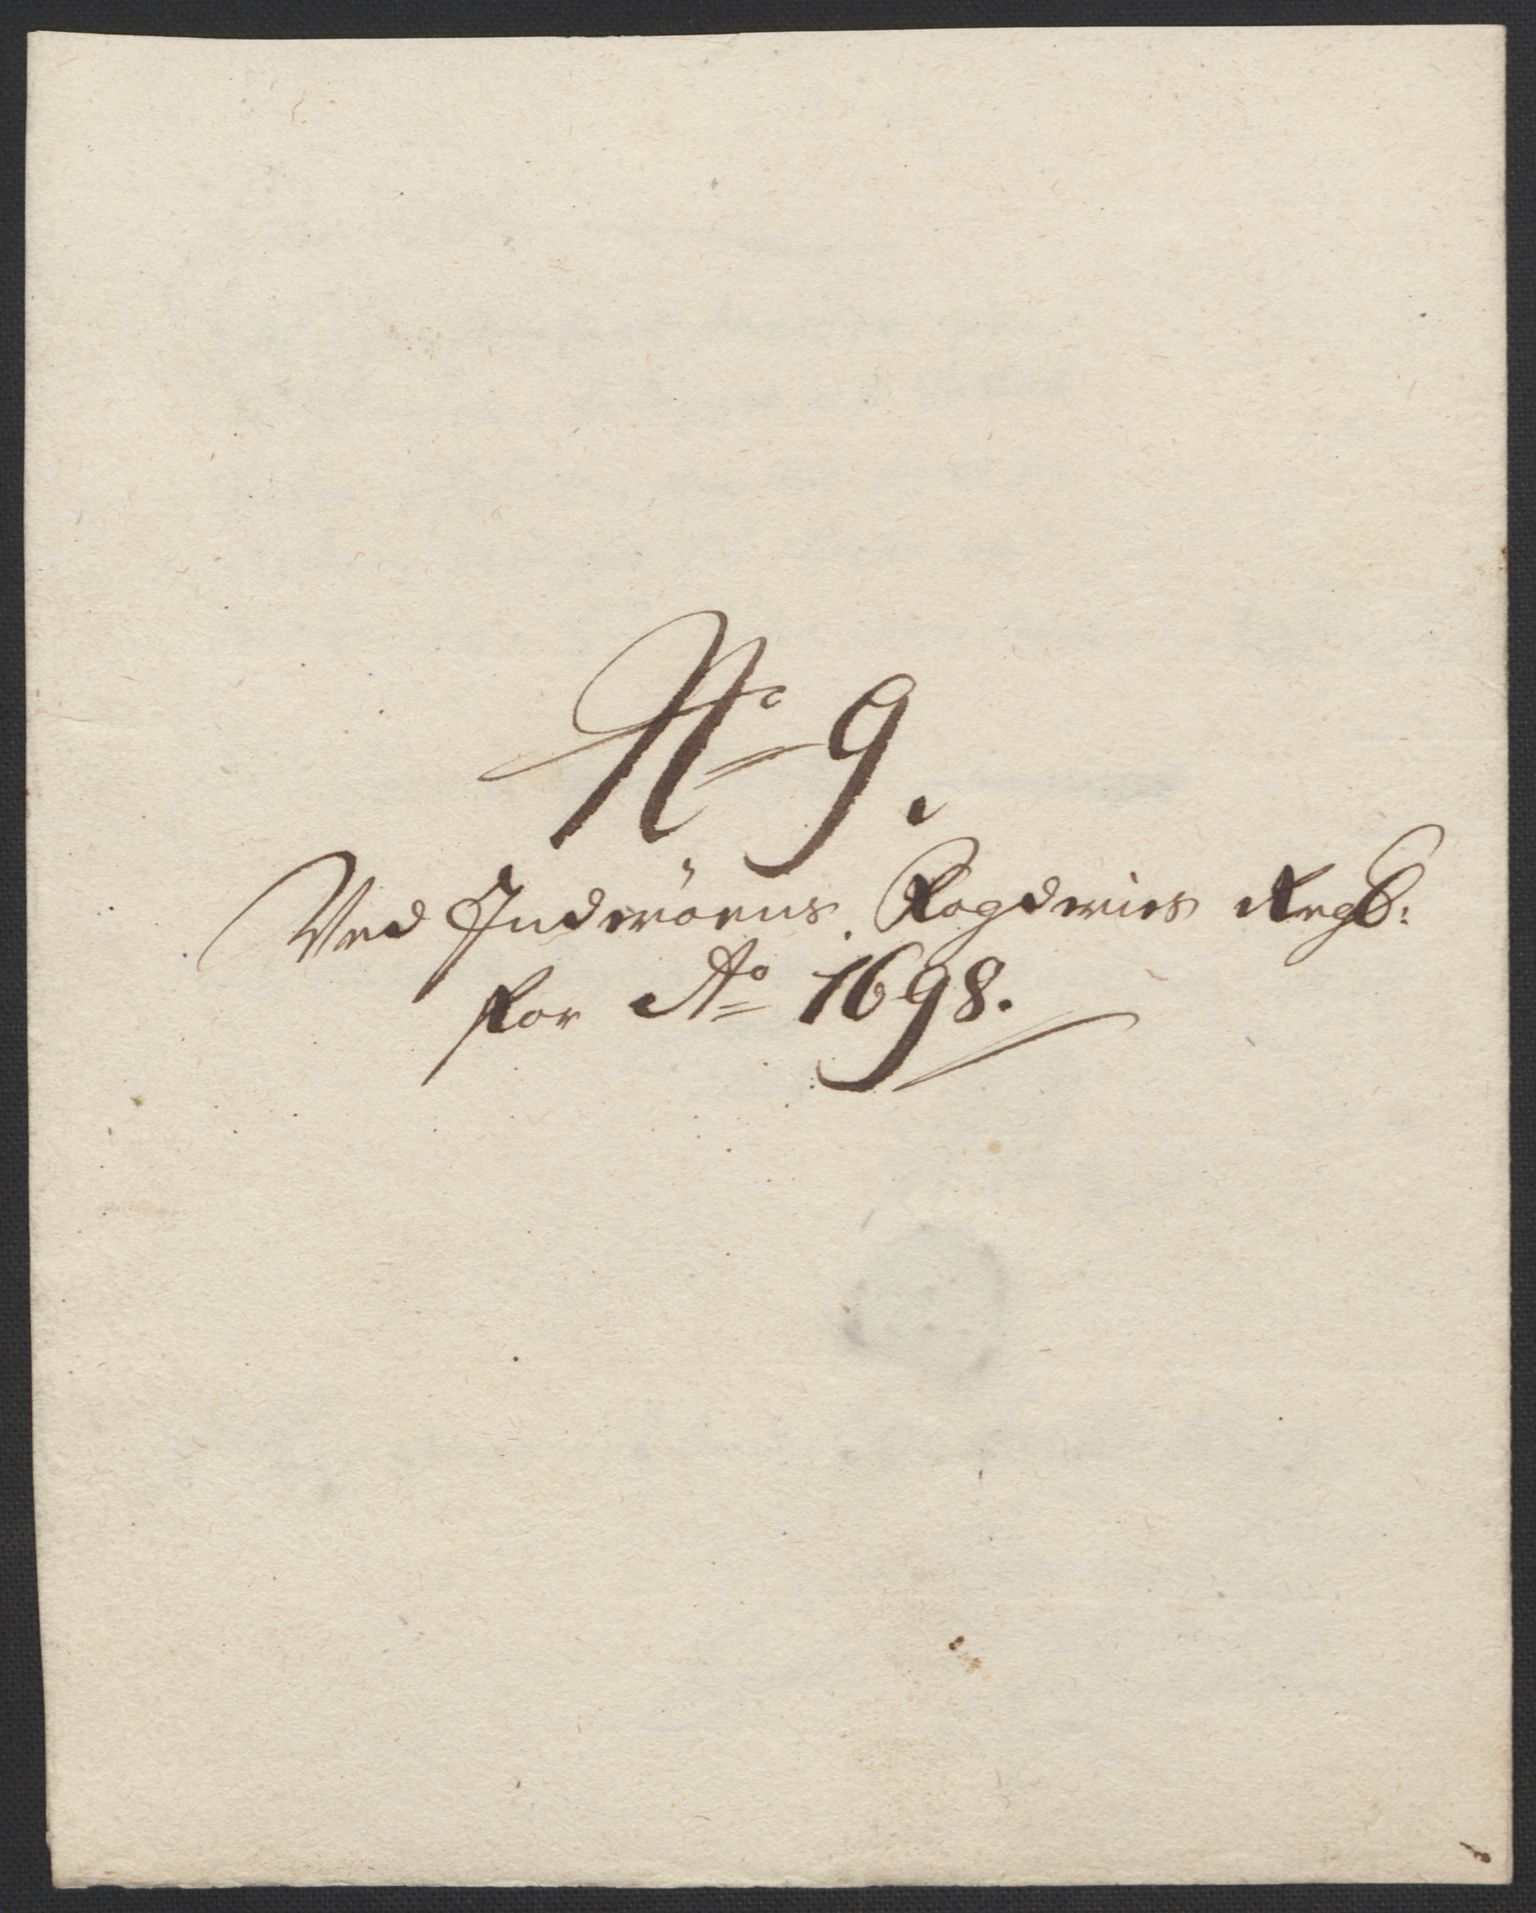 No 9.
Ved Inderöens Fogderies Regb:
for Ao 1698.